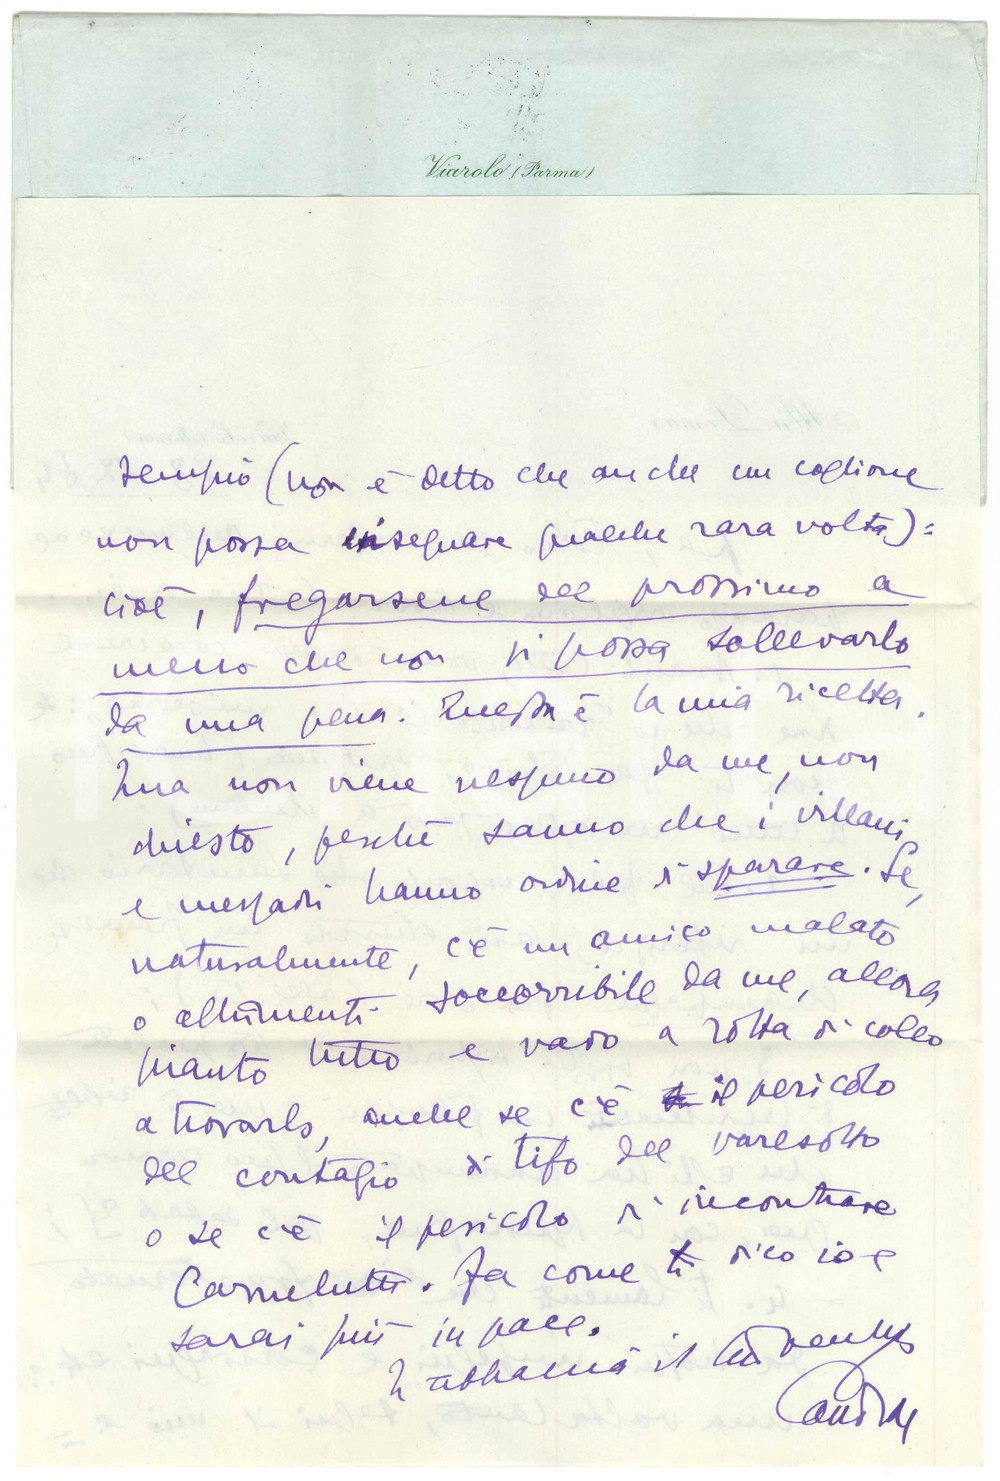 Viarolo (Parma)
sempio (non è detto che anche un coglione
non possa insegnare qualche rara volta)=
cioè, fregarsene del prossimo a
meno che non si possa sollevarlo
da una pena. Questa è la mia ricetta.
Qua non viene nessuno da me, non
chiesto, perché sanno che i villani
e mezzadri hanno ordine di sparare. Se,
naturalmente, c'è un amico malato
o altrimenti soccorribile da me, allora
pianto tutto e vado a rotta di collo
a trovarlo, anche se c'è il pericolo
del contagio di tifo del varesotto
o se c'è il pericolo di incontrare
Carnelutti. Fa come ti dico io e
sarai più in pace.
T'abbraccia il tuo